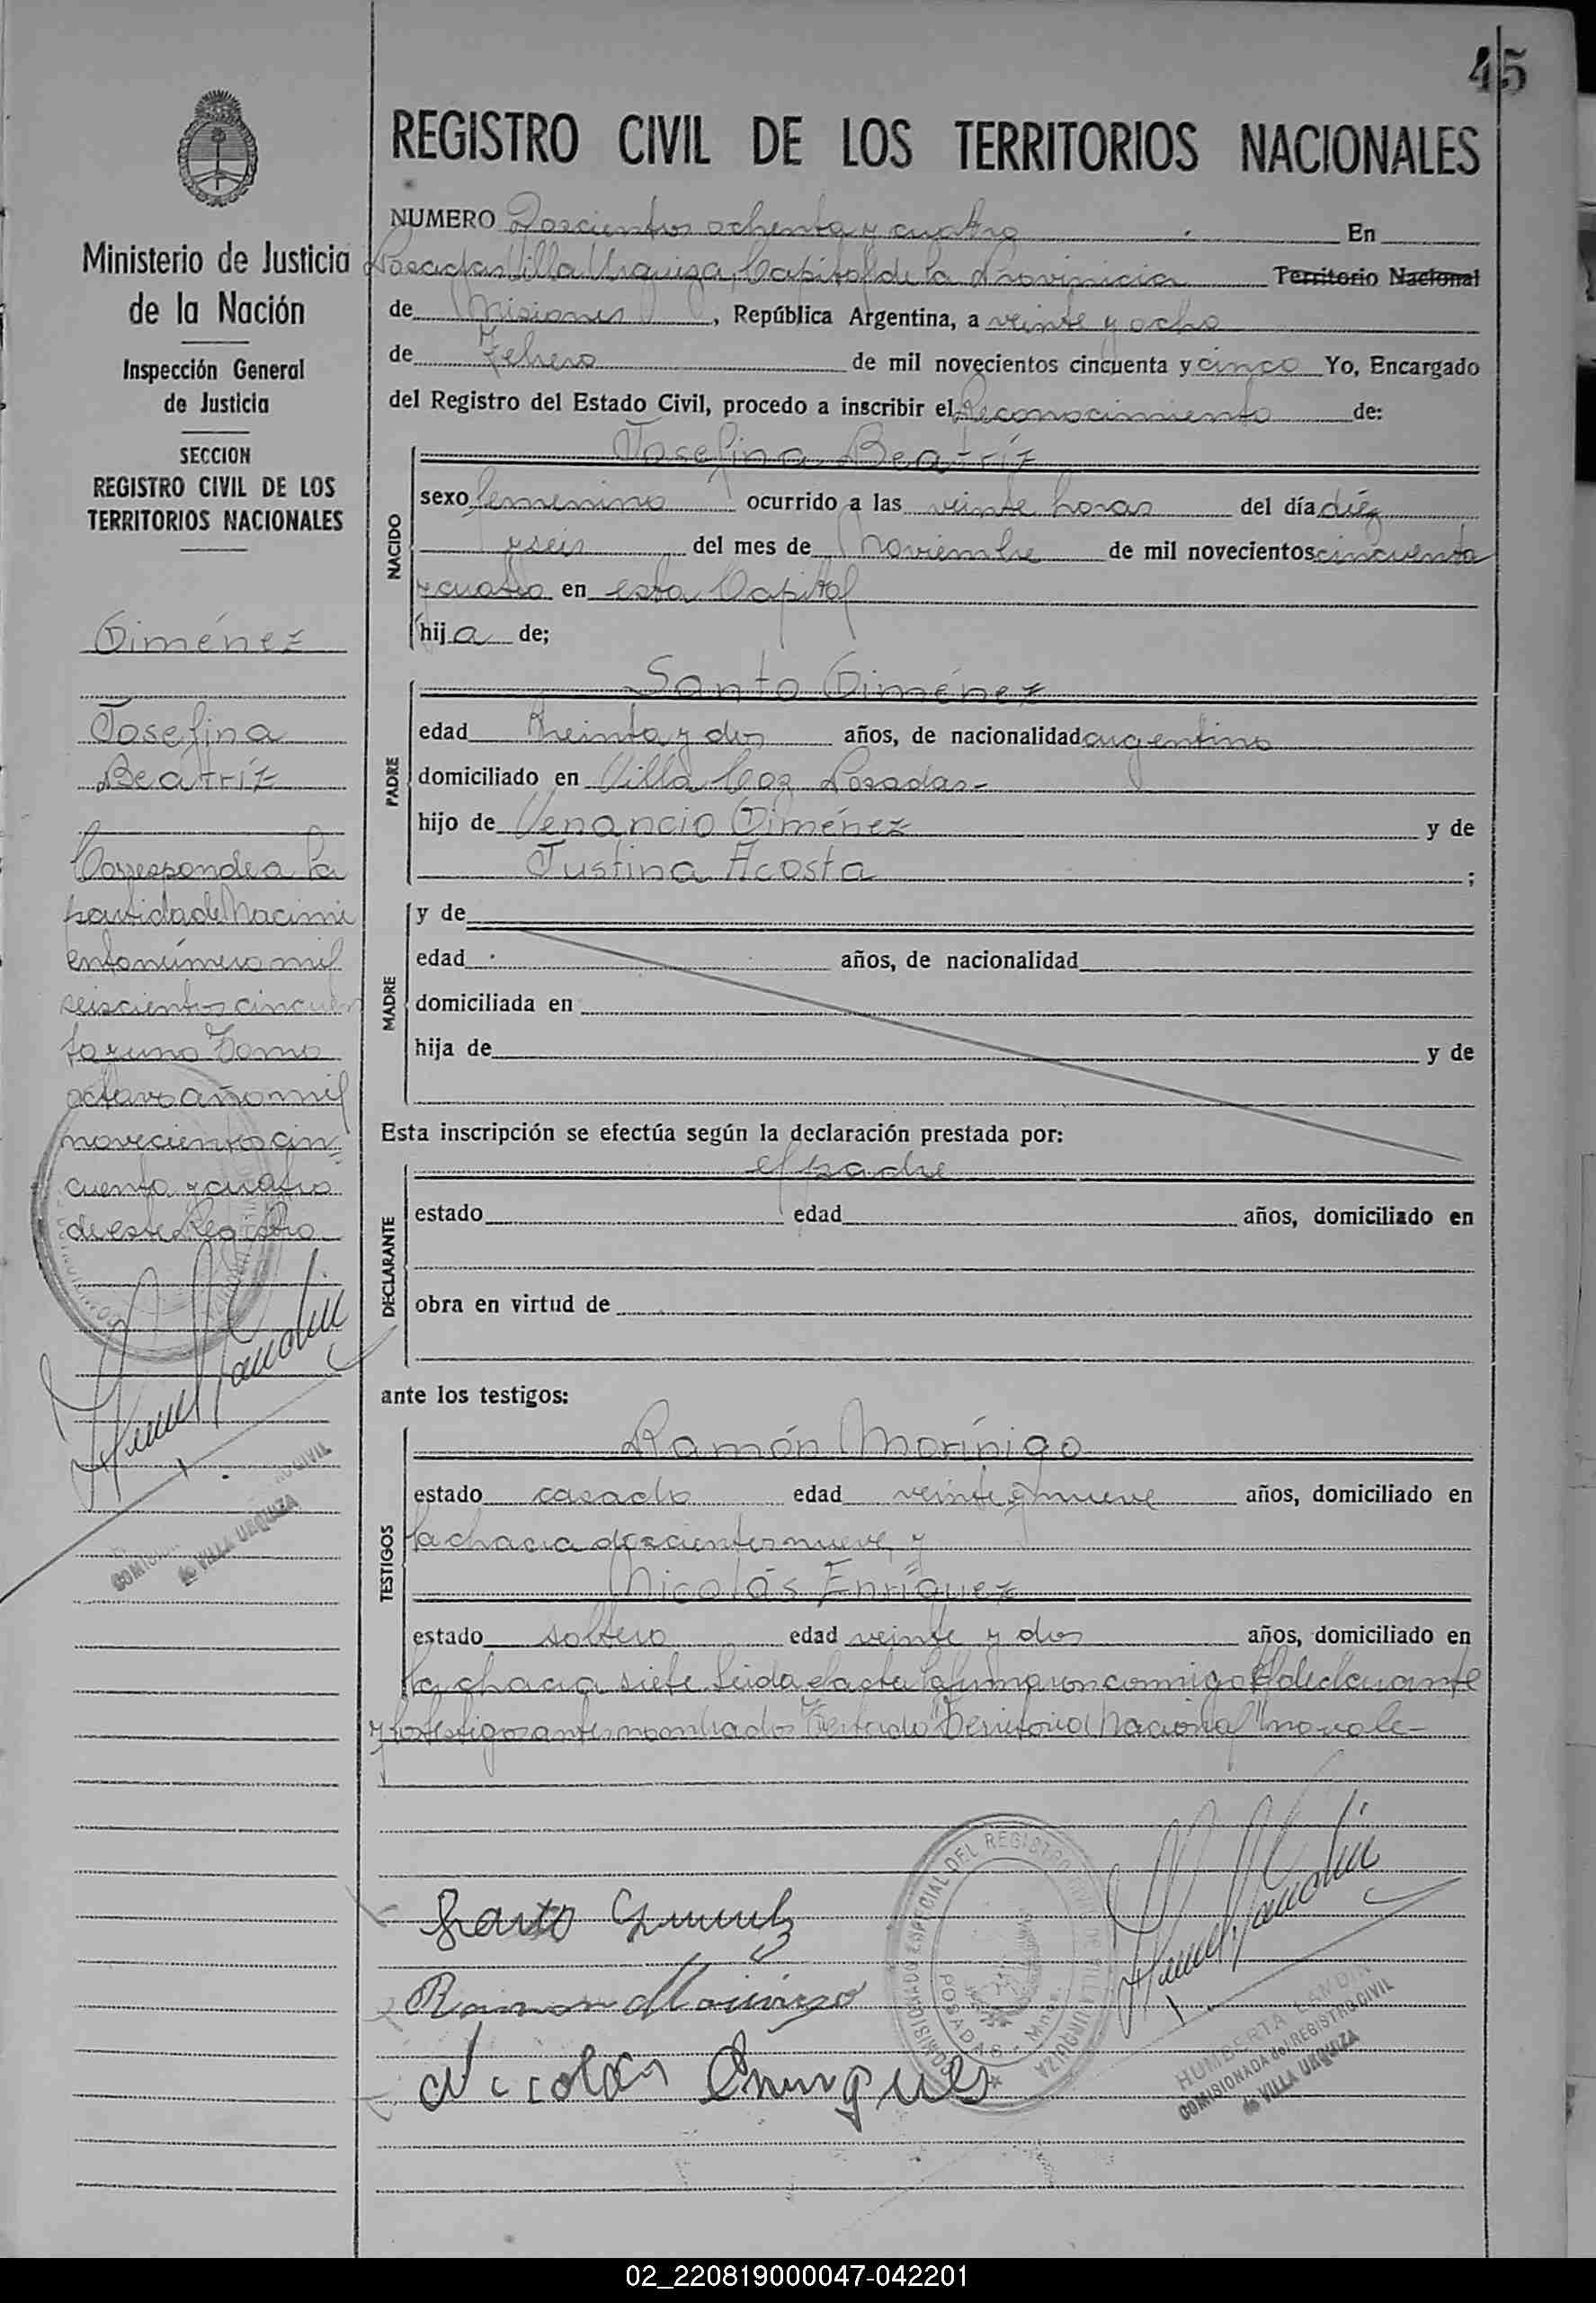 45
REGISTRO CIVIL DE LOS TERRITORIOS NACIONALES
NUMERO Doscientos ochenta y cuatro En
Posadas Villa Urquiza, Capital de la Provinicia Territorio Nacional
de Misiones, República Argentina, a veinte y ocho
de Febrero de mil novecientos cincuenta y cinco Yo, Encargado
del Registro del Estado Civil, procedo a inscribir el Reconocimiento de:
NACIDO
Josefina Beatríz
sexo femenino ocurrido a las veinte horas del día diéz
y seis del mes de Noviembre de mil novecientos cincuenta
y cuatro en esta Capital
hija de;
PADRE
Santo Giménez
edad treinta y dos años, de nacionalidad argentino
domiciliado en Villa Coz Posadas-
hijo de Venancio Giménez y de
Justina Acosta ;
MADRE
y de
edad años, de nacionalidad
domiciliada en
hija de y de
Esta inscripción se efectúa según la declaración prestada por:
DECLARANTE
el padre
estado edad años, domiciliado en
obra en virtud de
ante los testigos:
TESTIGOS
Ramón Morínigo
estado casado edad veinte y nueve años, domiciliado en
la chacra doscientos nueve, y
Nicolás Enríquez
estado soltero edad veinte y dos años, domiciliado en
la chacra siete Leida el acta la firmaron conmigo el declarante
y los testigos antes nombrados Testado "Territorio Nacional" no vale-
Santo Gimenez
Ramon Morinigo
Nicolas Enriques
COMISIONADO ESPECIAL DEL REGISTRO CIVIL DE VILLA URQUIZA
POSADAS - Mnes.
HUMBERTA LANDIN
COMISIONADA del REGISTRO CIVIL
de VILLA URQUIZA
Ministerio de Justicia
de la Nación
Inspección General
de Justicia
SECCION
REGISTRO CIVIL DE LOS
TERRITORIOS NACIONALES
Giménez
Josefina
Beatríz
Corresponde a la
partida de Nacimi
ento número mil
seiscientos cincuen
ta y uno Tomo
octavo año mil
novecientos cin-
cuenta y cuatro
de este Registro
CIVIL
de VILLA URQUIZA
02_220819000047-042201